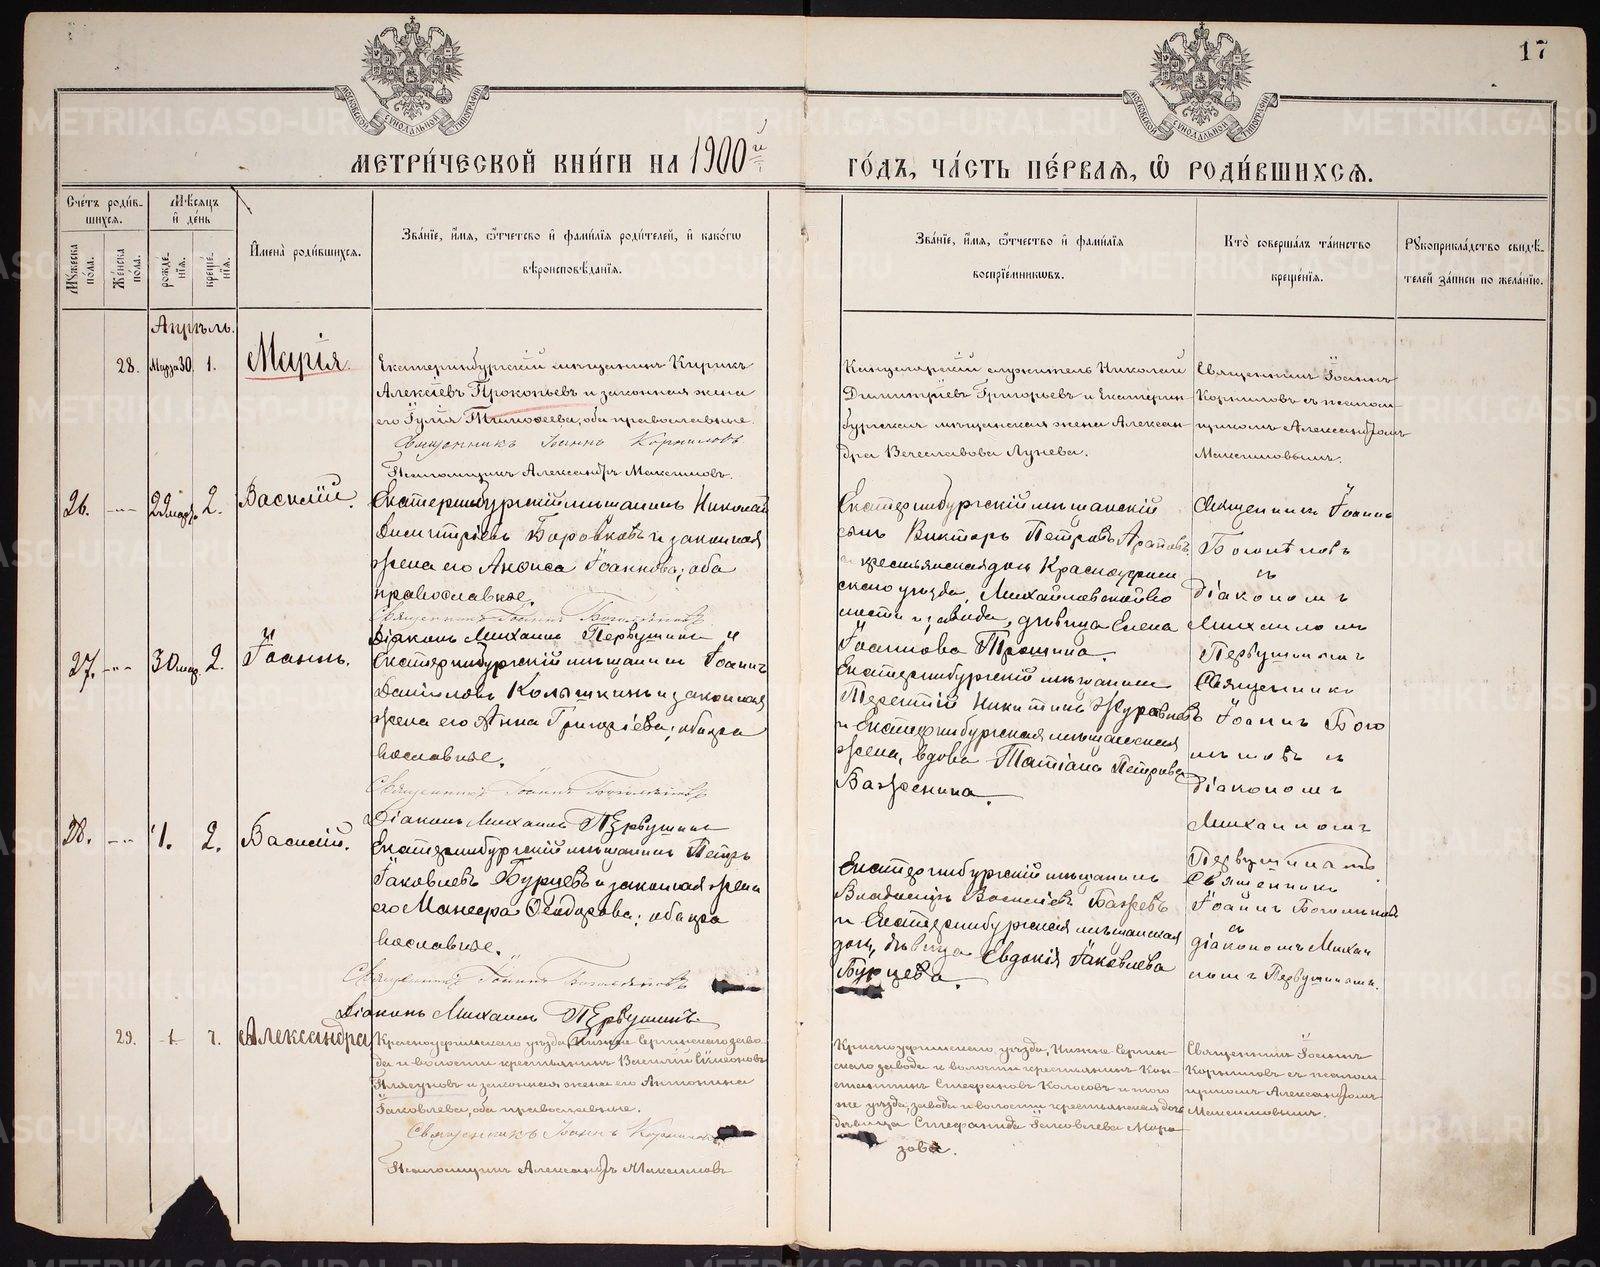 17
МОСКОВСКОЙ СѴНОДАЛЬНОЙ ТИПОГРАФІИ
МОСКОВСКОЙ СѴНОДАЛЬНОЙ ТИПОГРАФІИ
МЕТРИ́ЧЕСКОЙ КНИ́ГИ НА 1900й ГО́ДЪ, ЧА́СТЬ ПЕ́РВАЯ, Ѽ РОДИ́ВШИХСЯ.
Сче́тъ роди́в-
шихся.
Мѣ́сяцъ
и҆ де́нь
Мꙋжеска
по́ла.
Же́нска
по́ла.
рожде-
нїя.
креще-
нїя.
И҆мена̀ роди́вшихся.
Зва́нїе, и҆́мя, ѻ҆́тчество и҆ фами́лїя роди́телей, и҆ како́гѡ
вѣроисповѣ́данїя.
Зва́нїе, и҆́мя, ѻ҆́тчество и҆ фами́лїя
воспрїе́мникѡвъ.
Кто̀ соверша́лъ та́инство
креще́нїя.
Рꙋкоприкла́дство свидѣ́-
телей за́писи по жела́нїю.
Апрѣль.
28. Марта 30. 1. Марія.
Екатеринбургскій мѣщанинъ Кирикъ
Алексѣевъ Прокопьевъ и законная жена
его Гулія Тимофеева, оба православные.
Священникъ Іоаннъ Корниловъ
Псаломщикъ Александръ Максимовъ.
Канцелярскій служитель Николай
Димитріевъ Григорьевъ и Екатерин-
бургская мѣщанская жена Алексан-
дра Вечеславова Лунева.
Священникъ Іоаннъ
Корниловъ съ псалом-
щикомъ Александромъ
Максимовымъ.
26. -- 22 март. 2. Василій.
Екатеринбургскій мѣщанинъ Николай
Димитріевъ Боровковъ и законная
жена его Анфиса Іоаннова; оба
православные.
Священникъ Іоаннъ Богомѣновъ
Діаконъ Михаилъ Первушинъ
Екатеринбургскій мѣщанскій
сынъ Викторъ Петровъ Араповъ
и крестьянская дочь Красноуфим
скаго уѣзда, Михайловской во
лости и завода, дѣвица Елена
Іоаннова Трошина.
Священникъ Іоаннъ
съ
діакономъ
Михаиломъ
Первушинымъ
27. -- 30 мар. 2. Іоаннъ.
Екатеринбургскій мѣщанинъ Іоаннъ
Даниловъ Колышкинъ и законная
жена его Анна Григорьева; оба пра
вославные.
Священникъ Іоаннъ
Діаконъ Михаилъ Первушинъ
Екатеринбургскій мѣщанинъ
Терентій Никитинъ Журавлевъ
и Екатеринбургская мѣщанская
жена, вдова Татіана Петрова
Баженина.
Священникъ
Іоаннъ
съ
діакономъ
Михаиломъ
Первушинымъ.
28. -- 1. 2. Василій.
Екатеринбургскій мѣщанинъ Петръ
Іаковлевъ Бурцевъ и законная жена
его Манефа Ѳеодорова; оба пра
вославные.
Священникъ Іоаннъ
Діаконъ Михаилъ Первушинъ
Екатеринбургскій мѣщанинъ
Владиміръ Васильевъ Бажевъ
и Екатеринбургская мѣщанская
дочь, дѣвица Евдокія Іаковлева
Бурцева.
Священникъ
Іоаннъ
съ
діакономъ Михаи
ломъ Первушинымъ.
29. 1 1. Александра
Красноуфимскаго уѣзда, Нижне Сергинскаго заво-
да и волости крестьянинъ Василій Симеоновъ
Плясуновъ и законная жена его Антонина
Іаковлева, оба православные.
Священникъ Іоаннъ Корниловъ
Псаломщикъ Александръ Максимовъ
Красноуфимскаго уѣзда, Нижне Сергин-
скаго завода и волости крестьянинъ Кон-
стантинъ Стефановъ Колосовъ и того
же уѣзда, завода и волости крестьянская дочь
дѣвица Стефанида Іаковлева Моро-
зова.
Священникъ Іоаннъ
Корниловъ съ псалом-
щикомъ Александромъ
Максимовымъ.
METRIKI.GASO-URAL.RU